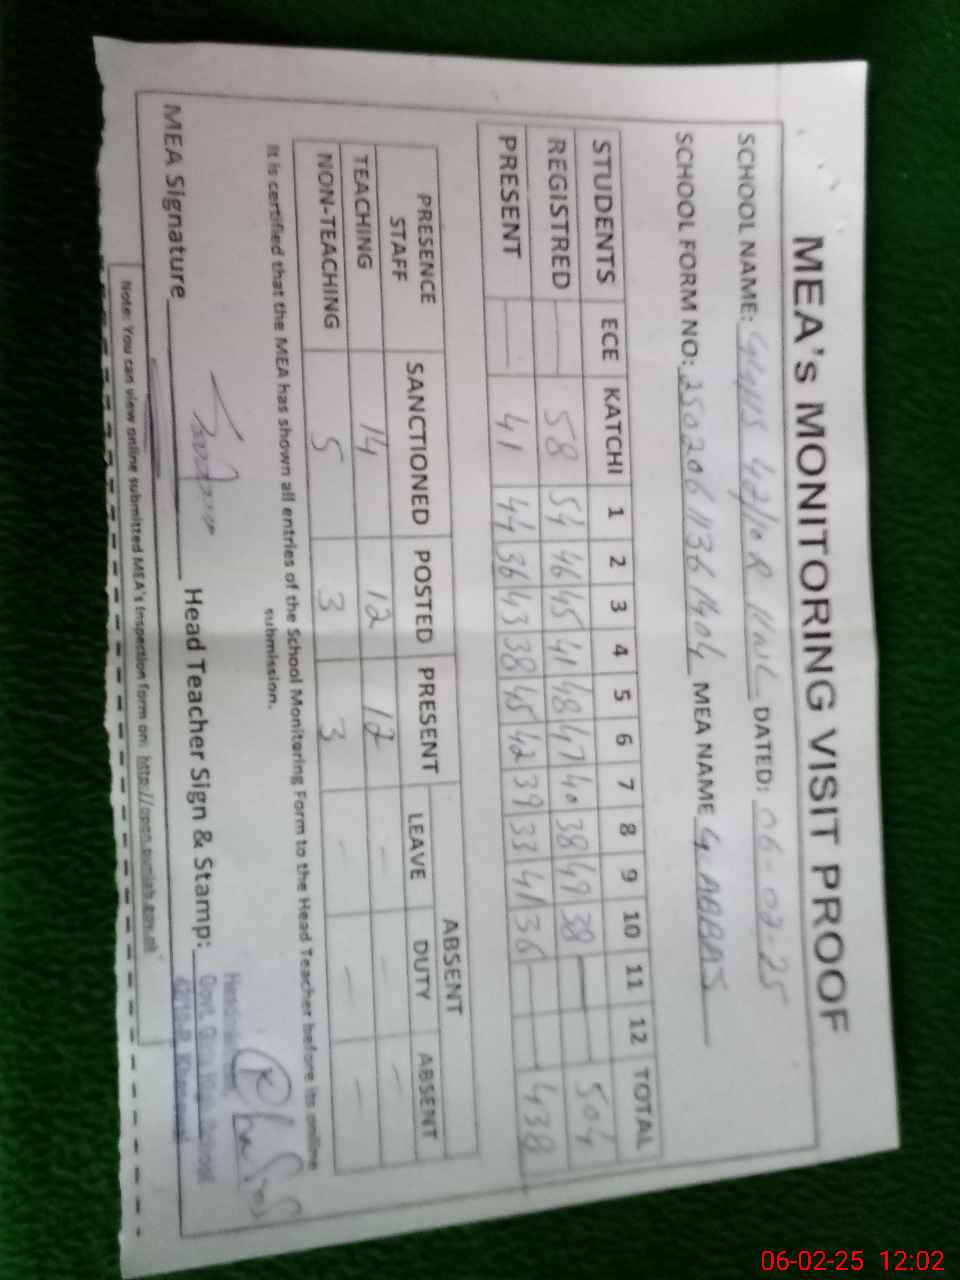 MEA's MONITORING VISIT PROOF
SCHOOL NAME: GGHS 42/10R DATED: 06-02-25
SCHOOL FORM NO: 25020611361404 MEA NAME G. ABBAS
STUDENTS ECE KATCHI 1 2 3 4 5 6 7 8 9 10 11 12 TOTAL
REGISTRED — 58 54 46 45 41 48 47 40 38 49 38 — — 504
PRESENT — 41 44 36 43 38 45 42 39 33 41 36 — — 438
PRESENCE STAFF SANCTIONED POSTED PRESENT ABSENT
LEAVE DUTY ABSENT
TEACHING 14 12 12 — — —
NON-TEACHING 5 3 3 — — —
It is certified that the MEA has shown all entries of the School Monitoring Form to the Head Teacher before its online
submission.
MEA Signature Head Teacher Sign & Stamp:
Govt. High School
42/10-R
Note: You can view online submitted MEA's Inspection form on: http://open.punjab.gov.pk
06-02-25 12:02